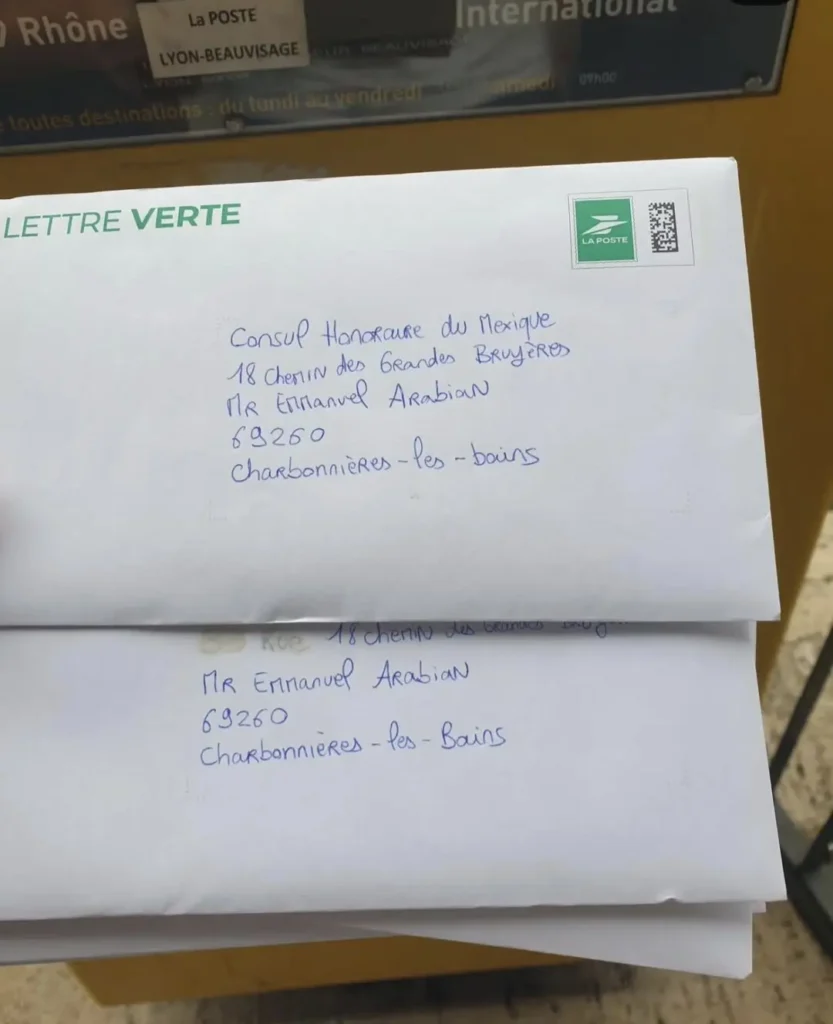 Rhône
La POSTE
LYON-BEAUVISAGE
International
toutes destinations : du lundi au vendredi
09h00
LETTRE VERTE
LA POSTE
Consul Honoraire du Mexique
18 Chemin des Grandes Bruyères
Mr Emmanuel Arabian
69260
Charbonnières-les-bains
Rue 18 chemin des Grandes
Mr Emmanuel Arabian
69260
Charbonnières-les-Bains